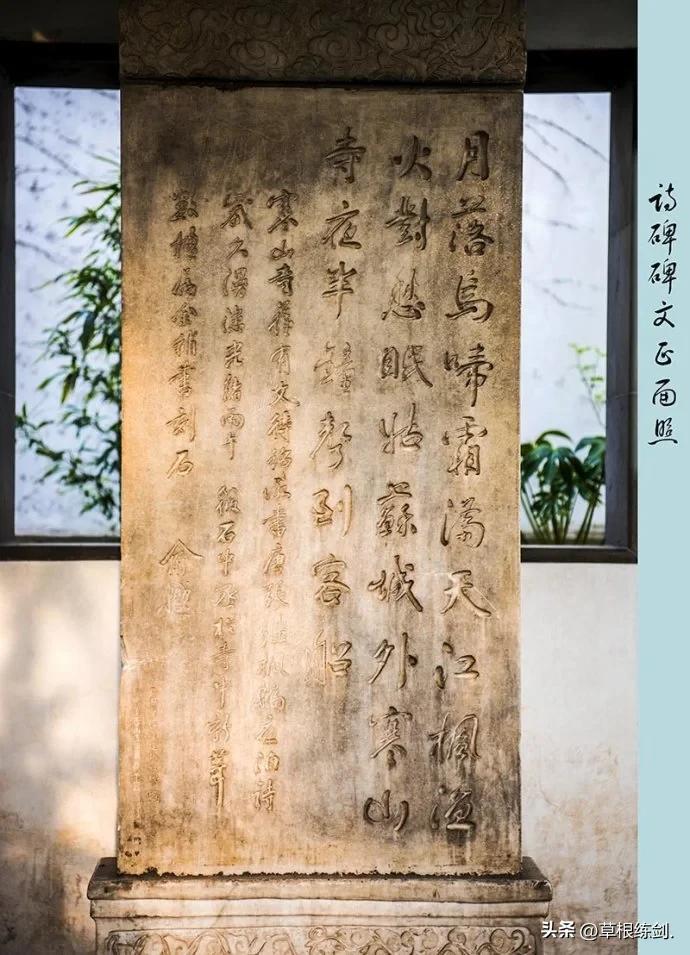 月落烏啼霜滿天江楓漁
火對愁眠姑蘇城外寒山
寺夜半鐘聲到客船
寒山寺舊有文待詔所書唐張繼楓橋夜泊詩
歲久漫漶光緒丙午 筱石中丞於寺中新葺
數楹屬余補書刻石 俞樾
诗碑碑文正面照
头条 @草根练剑.